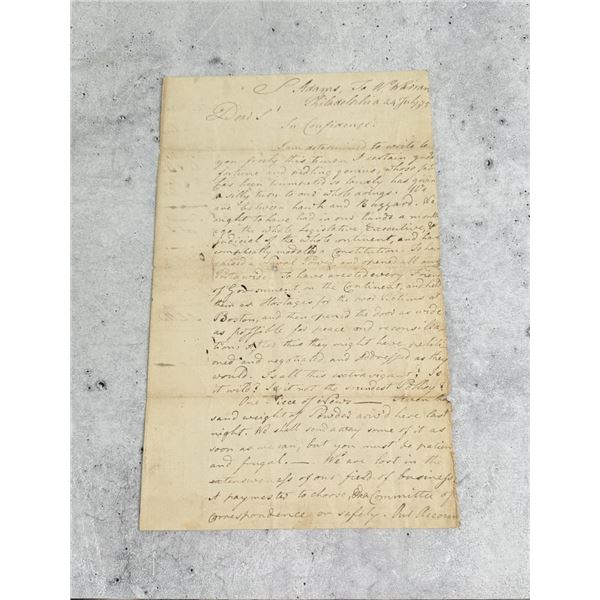 S Adams, To Wm Warran
Philadelphia 24 July 75
Dear Sr
In Confidence.
I am determined to write to
you freely this time. A certain great
fortune and piddling genius, whose fame
has been trumpeted so loudly has given
a silly turn to our whole doings. We
are between hawk and Buzzard. We
ought to have had in our hands a month
ago the whole Legislative Executive, &
judicial of the whole continent, and have
compleatly modelled a Constitution. To have
raised a Naval Power and opened all our
Ports wide. To have arrested every Friend
of Government on the Continent, and held
them as Hostages for the poor Victims at
Boston, and then opened the door as wide
as possible for peace and reconsilia
tion; After this they might have petiti
oned and negotiated and Addressed as they
would. Is all this extravigant? Is
it wild? Is it not the soundest Policy?
One Piece of News — Seven thou
sand weight of Powder arriv'd here last
night. We shall send away some of it as
soon as we can, but you must be patient
and frugal. — We are lost in the
extensiveness of our field of business
A paymaster to choose, a Committee of
correspondence or safety.